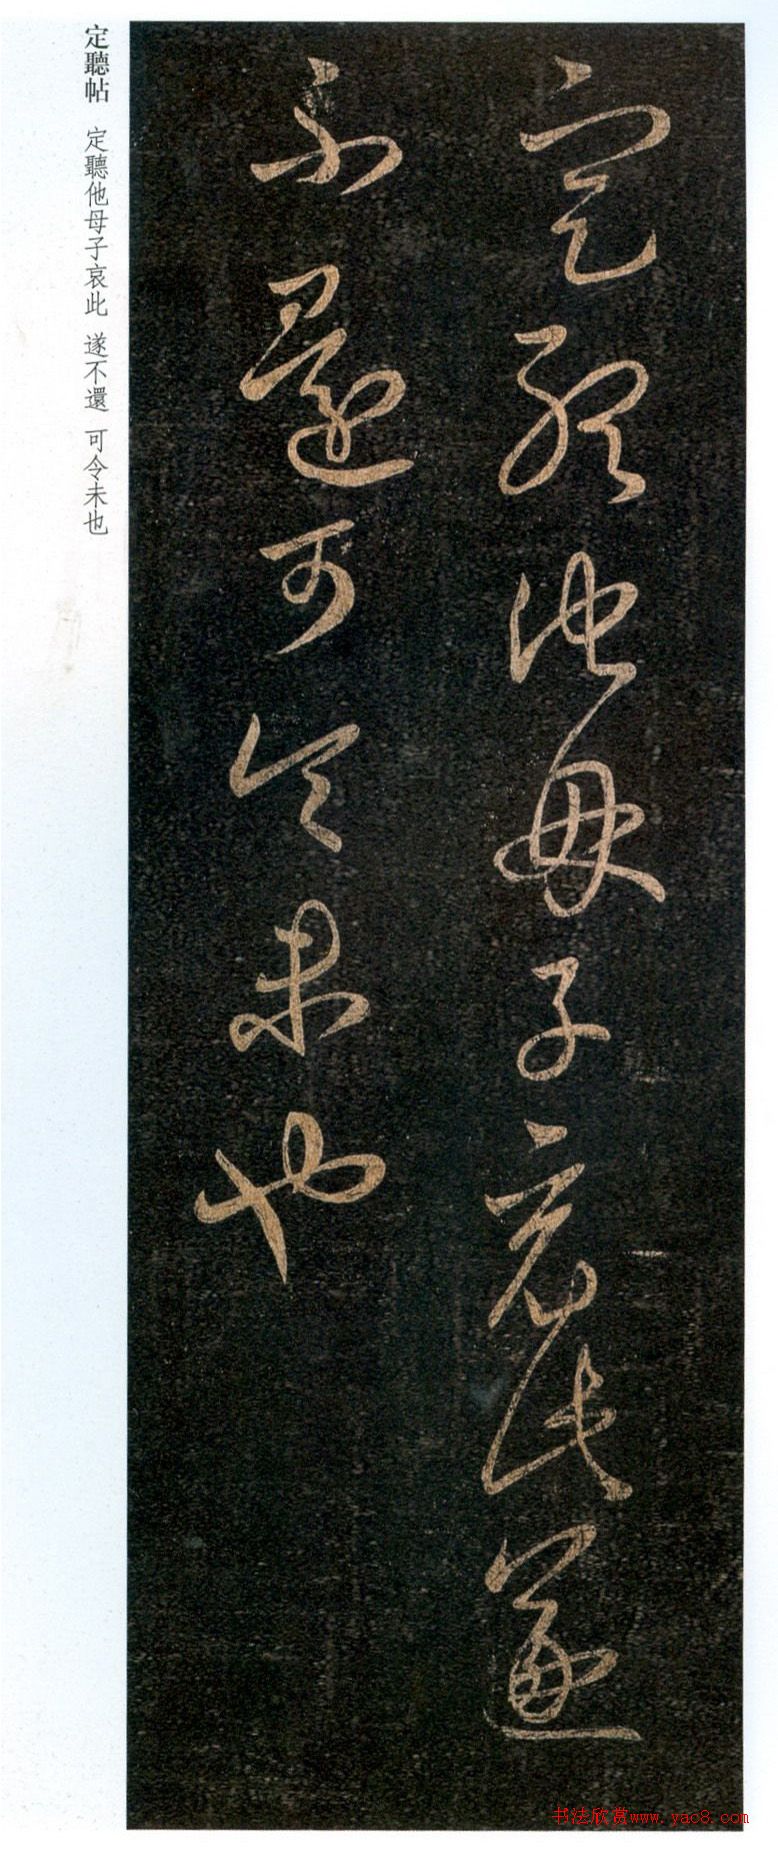 定聽他母子哀此遂
不還可令未也
定聽帖 定聽他母子哀此 遂不還 可令未也
书法欣赏www.yac8.com